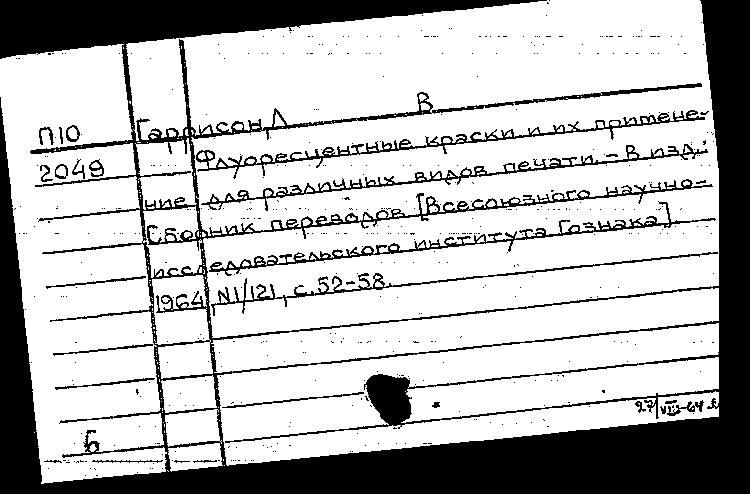 В
П10 Гаррисон, Л
2049 Флуоресцентные краски и их примене-
ние для различных видов печати. – В изд.:
Сборник переводов [Всесоюзного научно-
исследовательского института Гознака].
1964, N1/121, с. 52-58.
27/VIII-64
Б